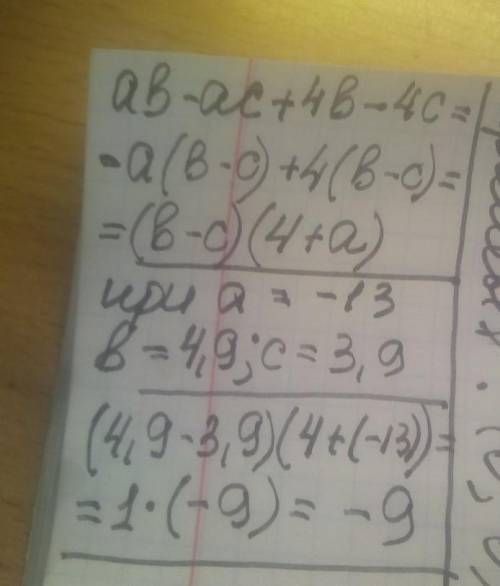 ав-ас+4в-4с=
-а(в-с)+4(в-с)=
=(в-с)(4+а)
при а = -13
в = 4,9; с = 3,9
(4,9-3,9)(4+(-13))=
=1·(-9)= -9